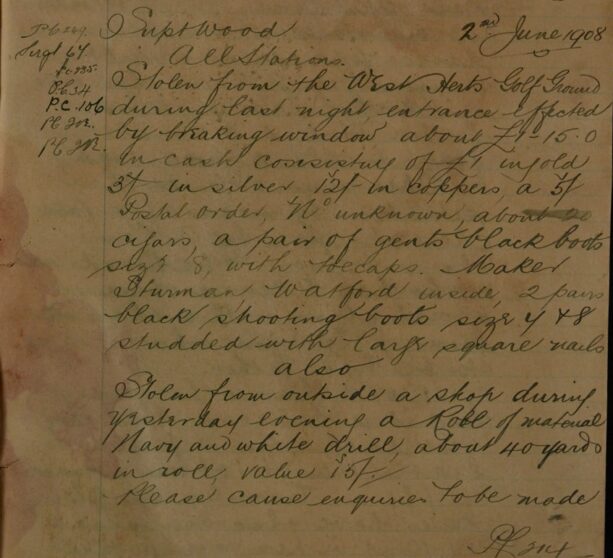 Supt Wood
2nd June 1908
All Stations.
Stolen from the West Herts Golf Ground
during last night, entrance effected
by breaking window about £1-15.0
in cash cosisisting of £1 in gold
3/ in silver 12/ in coppers, a 5/
Postal order, No unknown, about
cigars, a pair of gents black boots
size 8, with toecaps. Maker
Sturman Watford inside, 2 pairs
black shooting boots size 7 & 8
studded with large square nails
also
Stolen from outside a shop during
yesterday evening a Roll of material
Navy and white drill, about 40 yards
in roll, value 15/.
Please cause enquiries to be made
Sergt 67
P.C. 34
P.C. 106